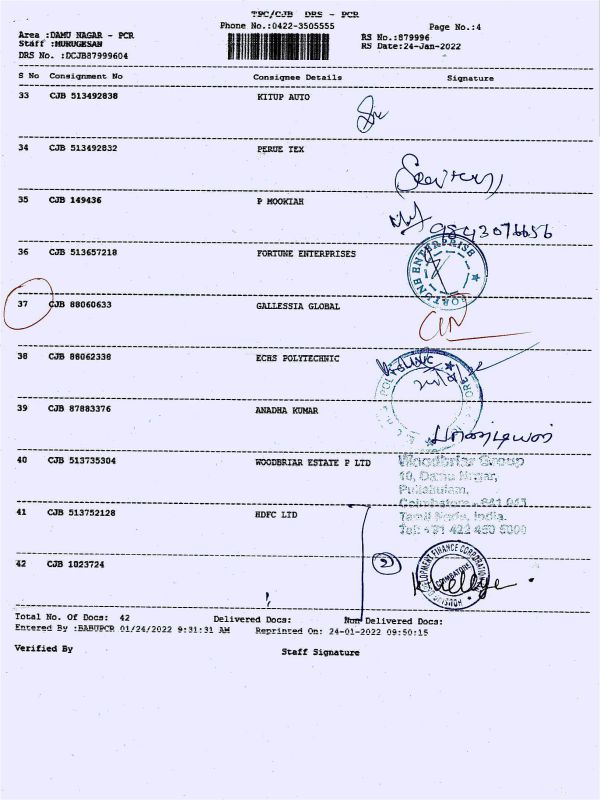 TPC/CJB DRS - PCR
Phone No.:0422-3505555 Page No.:4
Area :DAMU NAGAR - PCR RS No.:879996
Staff :MURUGESAN RS Date:24-Jan-2022
DRS No. :DCJB87999604
S No Consignment No Consignee Details Signature
33 CJB 513492838 KITUP AUTO
34 CJB 513492832 PERUE TEX
35 CJB 149436 P MOOKIAH
9843076656
36 CJB 513657218 FORTUNE ENTERPRISES
FORTUNE ENTERPRISE
37 CJB 88060633 GALLESSIA GLOBAL
38 CJB 88062338 ECHS POLYTECHNIC
39 CJB 87883376 ANADHA KUMAR
பாண்டியன்
40 CJB 513735304 WOODBRIAR ESTATE P LTD
Woodbriar Group
10, Damu Nagar,
Puliakulam,
Coimbatore - 641 045
Tamil Nadu, India.
41 CJB 513752128 HDFC LTD
42 CJB 1023724
2
HOUSING DEVELOPMENT FINANCE CORPORATION
COIMBATORE
Total No. Of Docs: 42 Delivered Docs: Non Delivered Docs:
Entered By :BABUPCR 01/24/2022 9:31:31 AM Reprinted On: 24-01-2022 09:50:15
Verified By Staff Signature